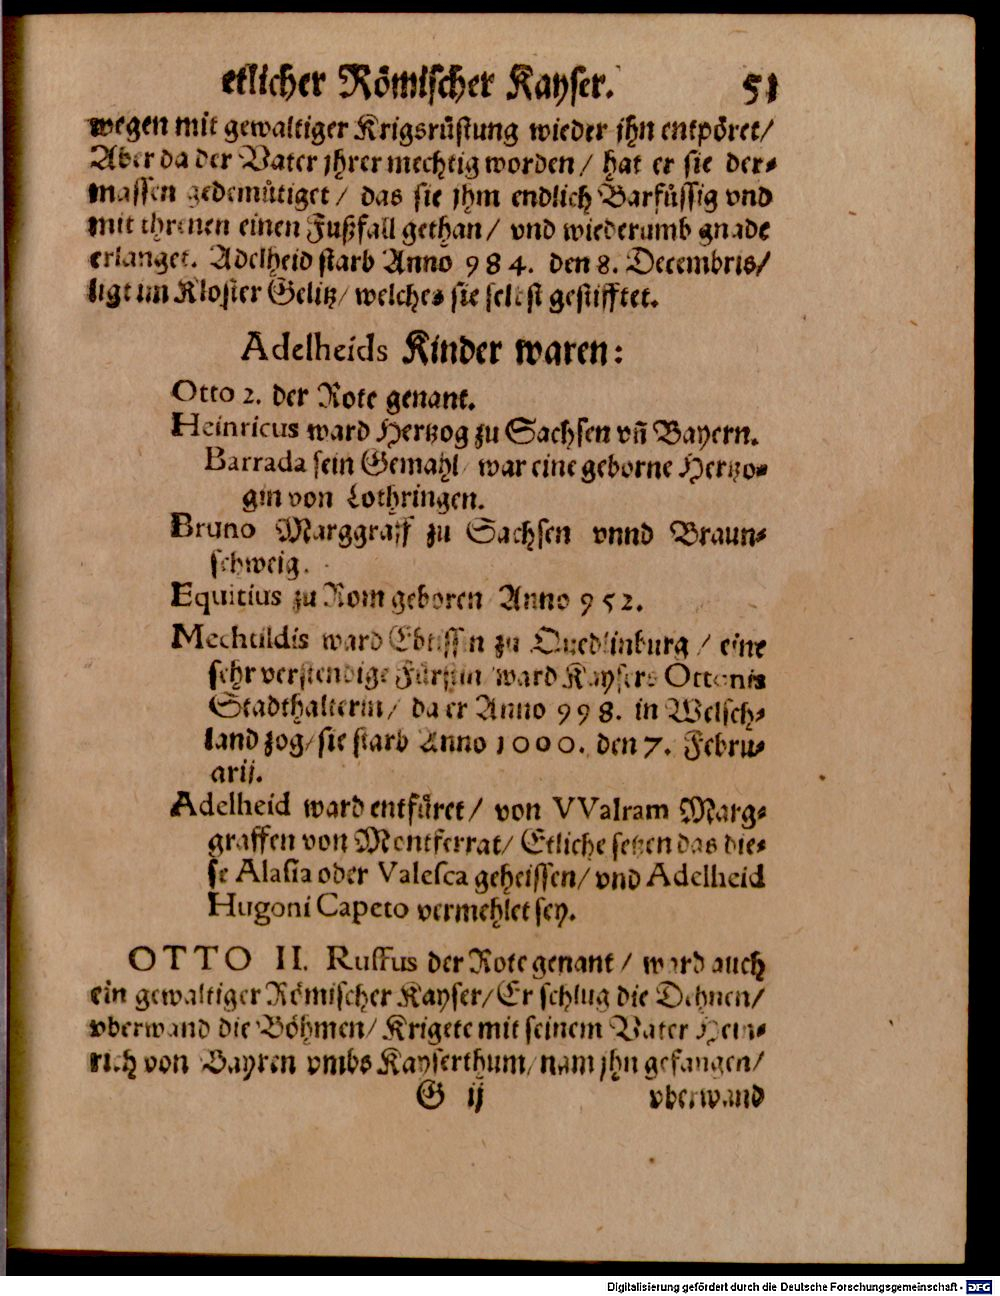 etlicher Römischer Kayser. 51
wegen mit gewaltiger Krigsrüstung wieder jhn entpöret/
Aber da der Vater jhrer mechtig worden/ hat er sie der-
massen gedemütiget/ das sie jhm endlich Barfüssig vnd
mit threnen einen Fußfall gethan/ vnd wiederumb gnade
erlanget. Adelheid starb Anno 984. den 8. Decembris/
ligt im Kloster Geliz/ welches sie selbst gestifftet.
Adelheids Kinder waren:
Otto 2. der Rote genant.
Heinricus ward Hertzog zu Sachsen vñ Bayern.
Barrada sein Gemahl/ war eine geborne Hertzo-
gin von Lothringen.
Bruno Marggraff zu Sachsen vnnd Braun-
schweig.
Equitius zu Rom geboren Anno 952.
Mechtildis ward Ebtissin zu Quedlinburg/ eine
sehr verstendige Fürstin/ ward Kaysers Ottonis
Stadthalterin/ da er Anno 998. in Welsch-
land zog/ sie starb Anno 1000. den 7. Febru-
arij.
Adelheid ward entfüret/ von VValram Marg-
graffen von Montferrat/ Etliche setzen das die-
se Alasia oder Valesca geheissen/ vnd Adelheid
Hugoni Capeto vermehlet sey.
OTTO II. Ruffus der Rote genant/ ward auch
ein gewaltiger Römischer Kayser/ Er schlug die Dehnen/
vberwand die Böhmen/ Krigete mit seinem Vater Hein-
rich von Bayren vmbs Kayserthum/ nam jhn gefangen/
G ij vberwand
Digitalisierung gefördert durch die Deutsche Forschungsgemeinschaft - DFG